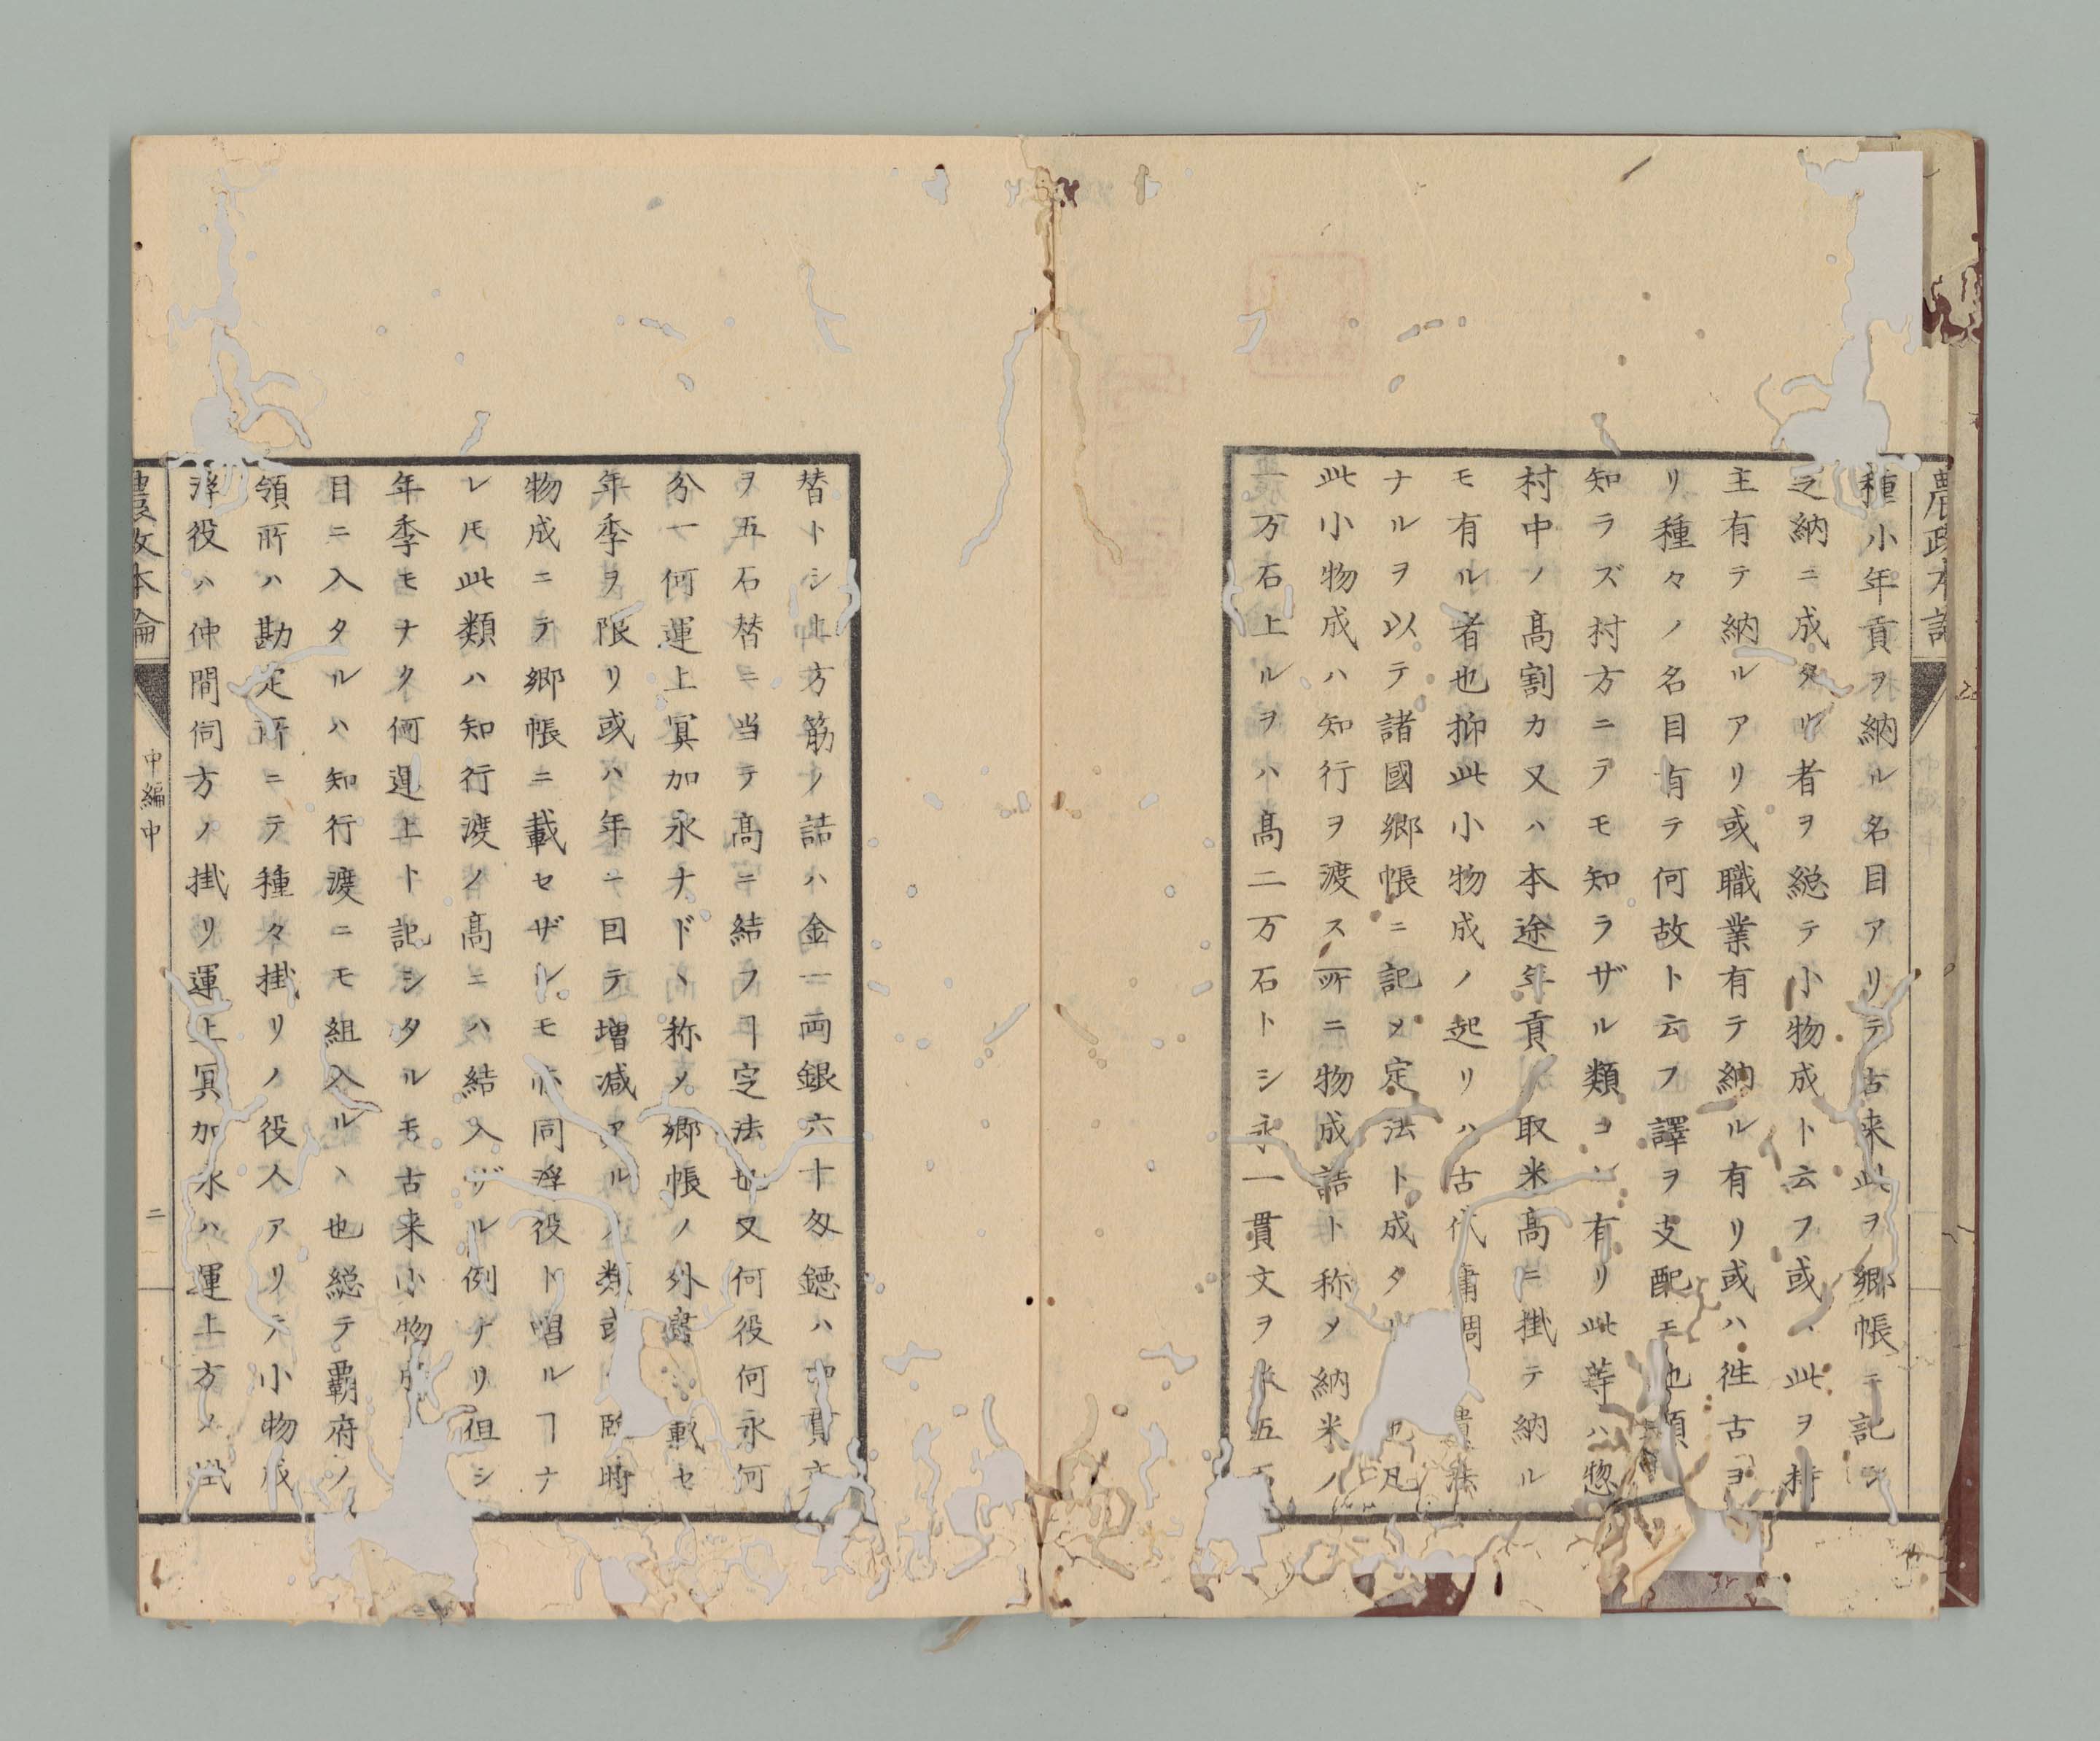 農政本論
種小年貢ヲ納ル名目アリテ古来此ヲ郷帳ニ記シ
定納ニ成タル者ヲ総テ小物成ト云フ或ハ此ヲ持
主有テ納ルアリ或職業有テ納ル有リ或ハ徃古ヨ
リ種々ノ名目有テ何故ト云フ譯ヲ支配モ地頭
知ラズ村方ニテモ知ラザル類ヒ有リ此等ハ惣
村中ノ髙割カ又ハ本途年貢ノ取米髙ニ掛テ納ル
モ有ル者也抑此小物成ノ起リハ古代庸調
ナルヲ以テ諸國郷帳ニ記メ定法ト成タリ 凡
此小物成ハ知行ヲ渡ス所ニ物成詰ト称メ納米ノ
一万石上ルヲハ髙二万石トシ永一貫文ヲ米五石
替トシ上方筋ノ詰ハ金一両銀六十匁鐚ハ 貫文
ヲ五石替ニ当テ髙ニ結フヿ定法也又何役何永何
分一何運上冥加永ナド丶称メ郷帳ノ外書ニ載セ
年季ヲ限リ或ハ年ニ回テ増減アルノ類或 臨時
物成ニテ郷帳ニ載セザルモ亦同浮役ト唱ルヿナ
レ𪜈此類ハ知行渡ノ髙ニハ結入ザル例ナリ但シ
年季モナク何運上ト記シタルモ古来小物成
目ニ入タルハ知行渡ニモ組入ル丶也総テ覇府ノ
領所ハ勘定所ニテ種々掛リノ役人アリテ小物成
浮役ハ仲間伺方ノ掛リ運上冥加永ハ運上方メ掛
農政本論
中編中
二